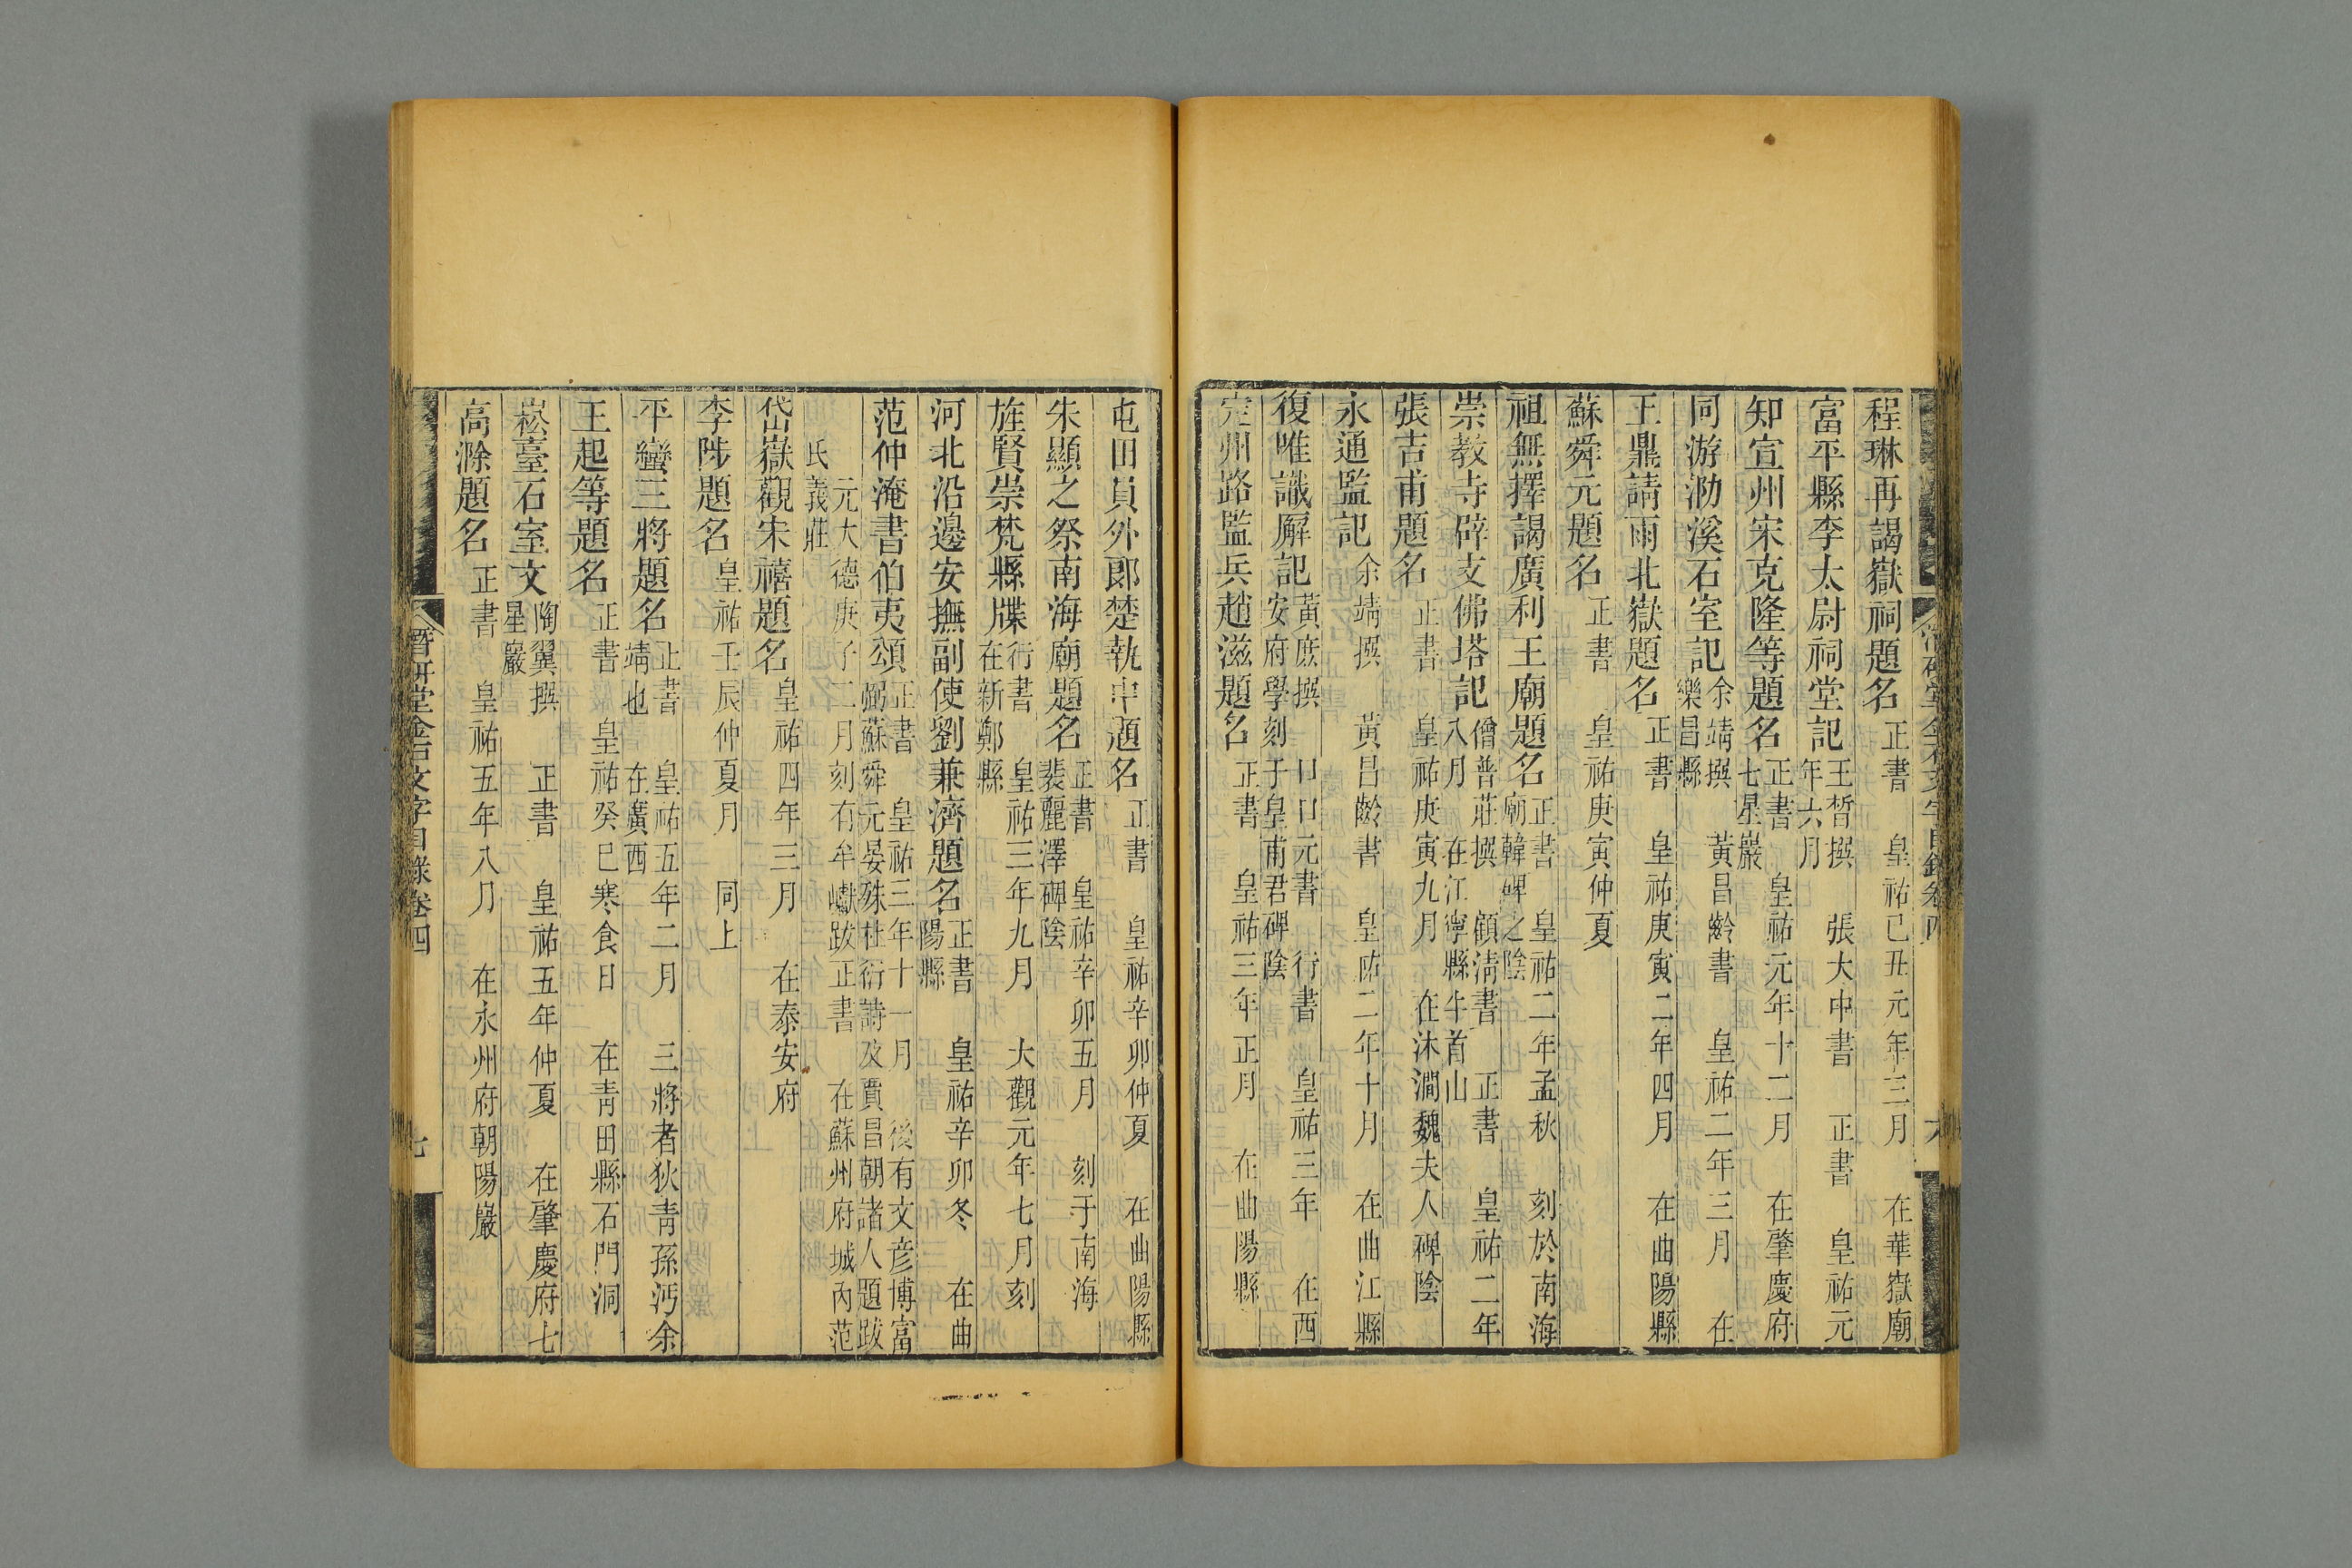 程琳再謁嶽祠題名 正書 皇祐己丑元年三月 在華嶽廟
富平縣李太尉祠堂記 王晳撰 張大中書 正書 皇祐元年六月
知宣州宋克隆等題名 正書 皇祐元年十二月 在肇慶府七星巖
同游泐溪石室記 余靖撰 黃昌齡書 皇祐二年三月 在樂昌縣
王鼎請雨北嶽題名 正書 皇祐庚寅二年四月 在曲陽縣
蘇舜元題名 正書 皇祐庚寅仲夏
祖無擇謁廣利王廟題名 正書 皇祐二年孟秋 刻於南海廟韓碑之陰
崇教寺辟支佛塔記 僧普莊撰 顧淸書 正書 皇祐二年八月 在江寧縣牛首山
張吉甫題名 正書 皇祐庚寅九月 在沐澗魏夫人碑陰
永通監記 余靖撰 黃昌齡書 皇祐二年十月 在曲江縣
復唯識廨記 黃庶撰 口口元書 行書 皇祐三年 在西安府學刻于皇甫君碑陰
定州路監兵趙滋題名 正書 皇祐三年正月 在曲陽縣
屯田員外郎楚執中題名 正書 皇祐辛卯仲夏 在曲陽縣
朱顯之祭南海廟題名 正書 皇祐辛卯五月 刻于南海裴麗澤碑陰
旌賢崇梵縣牒 行書 皇祐三年九月 大觀元年七月刻 在新鄭縣
河北沿邊安撫副使劉兼濟題名 正書 皇祐辛卯冬 在曲陽縣
范仲淹書伯夷頌 正書 皇祐三年十一月 後有文彦博富弼蘇舜元晏殊杜衍詩及賈昌朝諸人題跋
元大德庚子二月刻有牟巘跋正書 在蘇州府城內范氏義莊
岱嶽觀朱禧題名 皇祐四年三月 在泰安府
李陟題名 皇祐壬辰仲夏月 同上
平蠻三將題名 正書 皇祐五年二月 三將者狄靑孫沔余靖也 在廣西
王起等題名 正書 皇祐癸巳寒食日 在靑田縣石門洞
崧臺石室文 陶翼撰 正書 皇祐五年仲夏 在肇慶府七星巖
高滁題名 正書 皇祐五年八月 在永州府朝陽巖
潛研堂金石文字目錄卷四 七